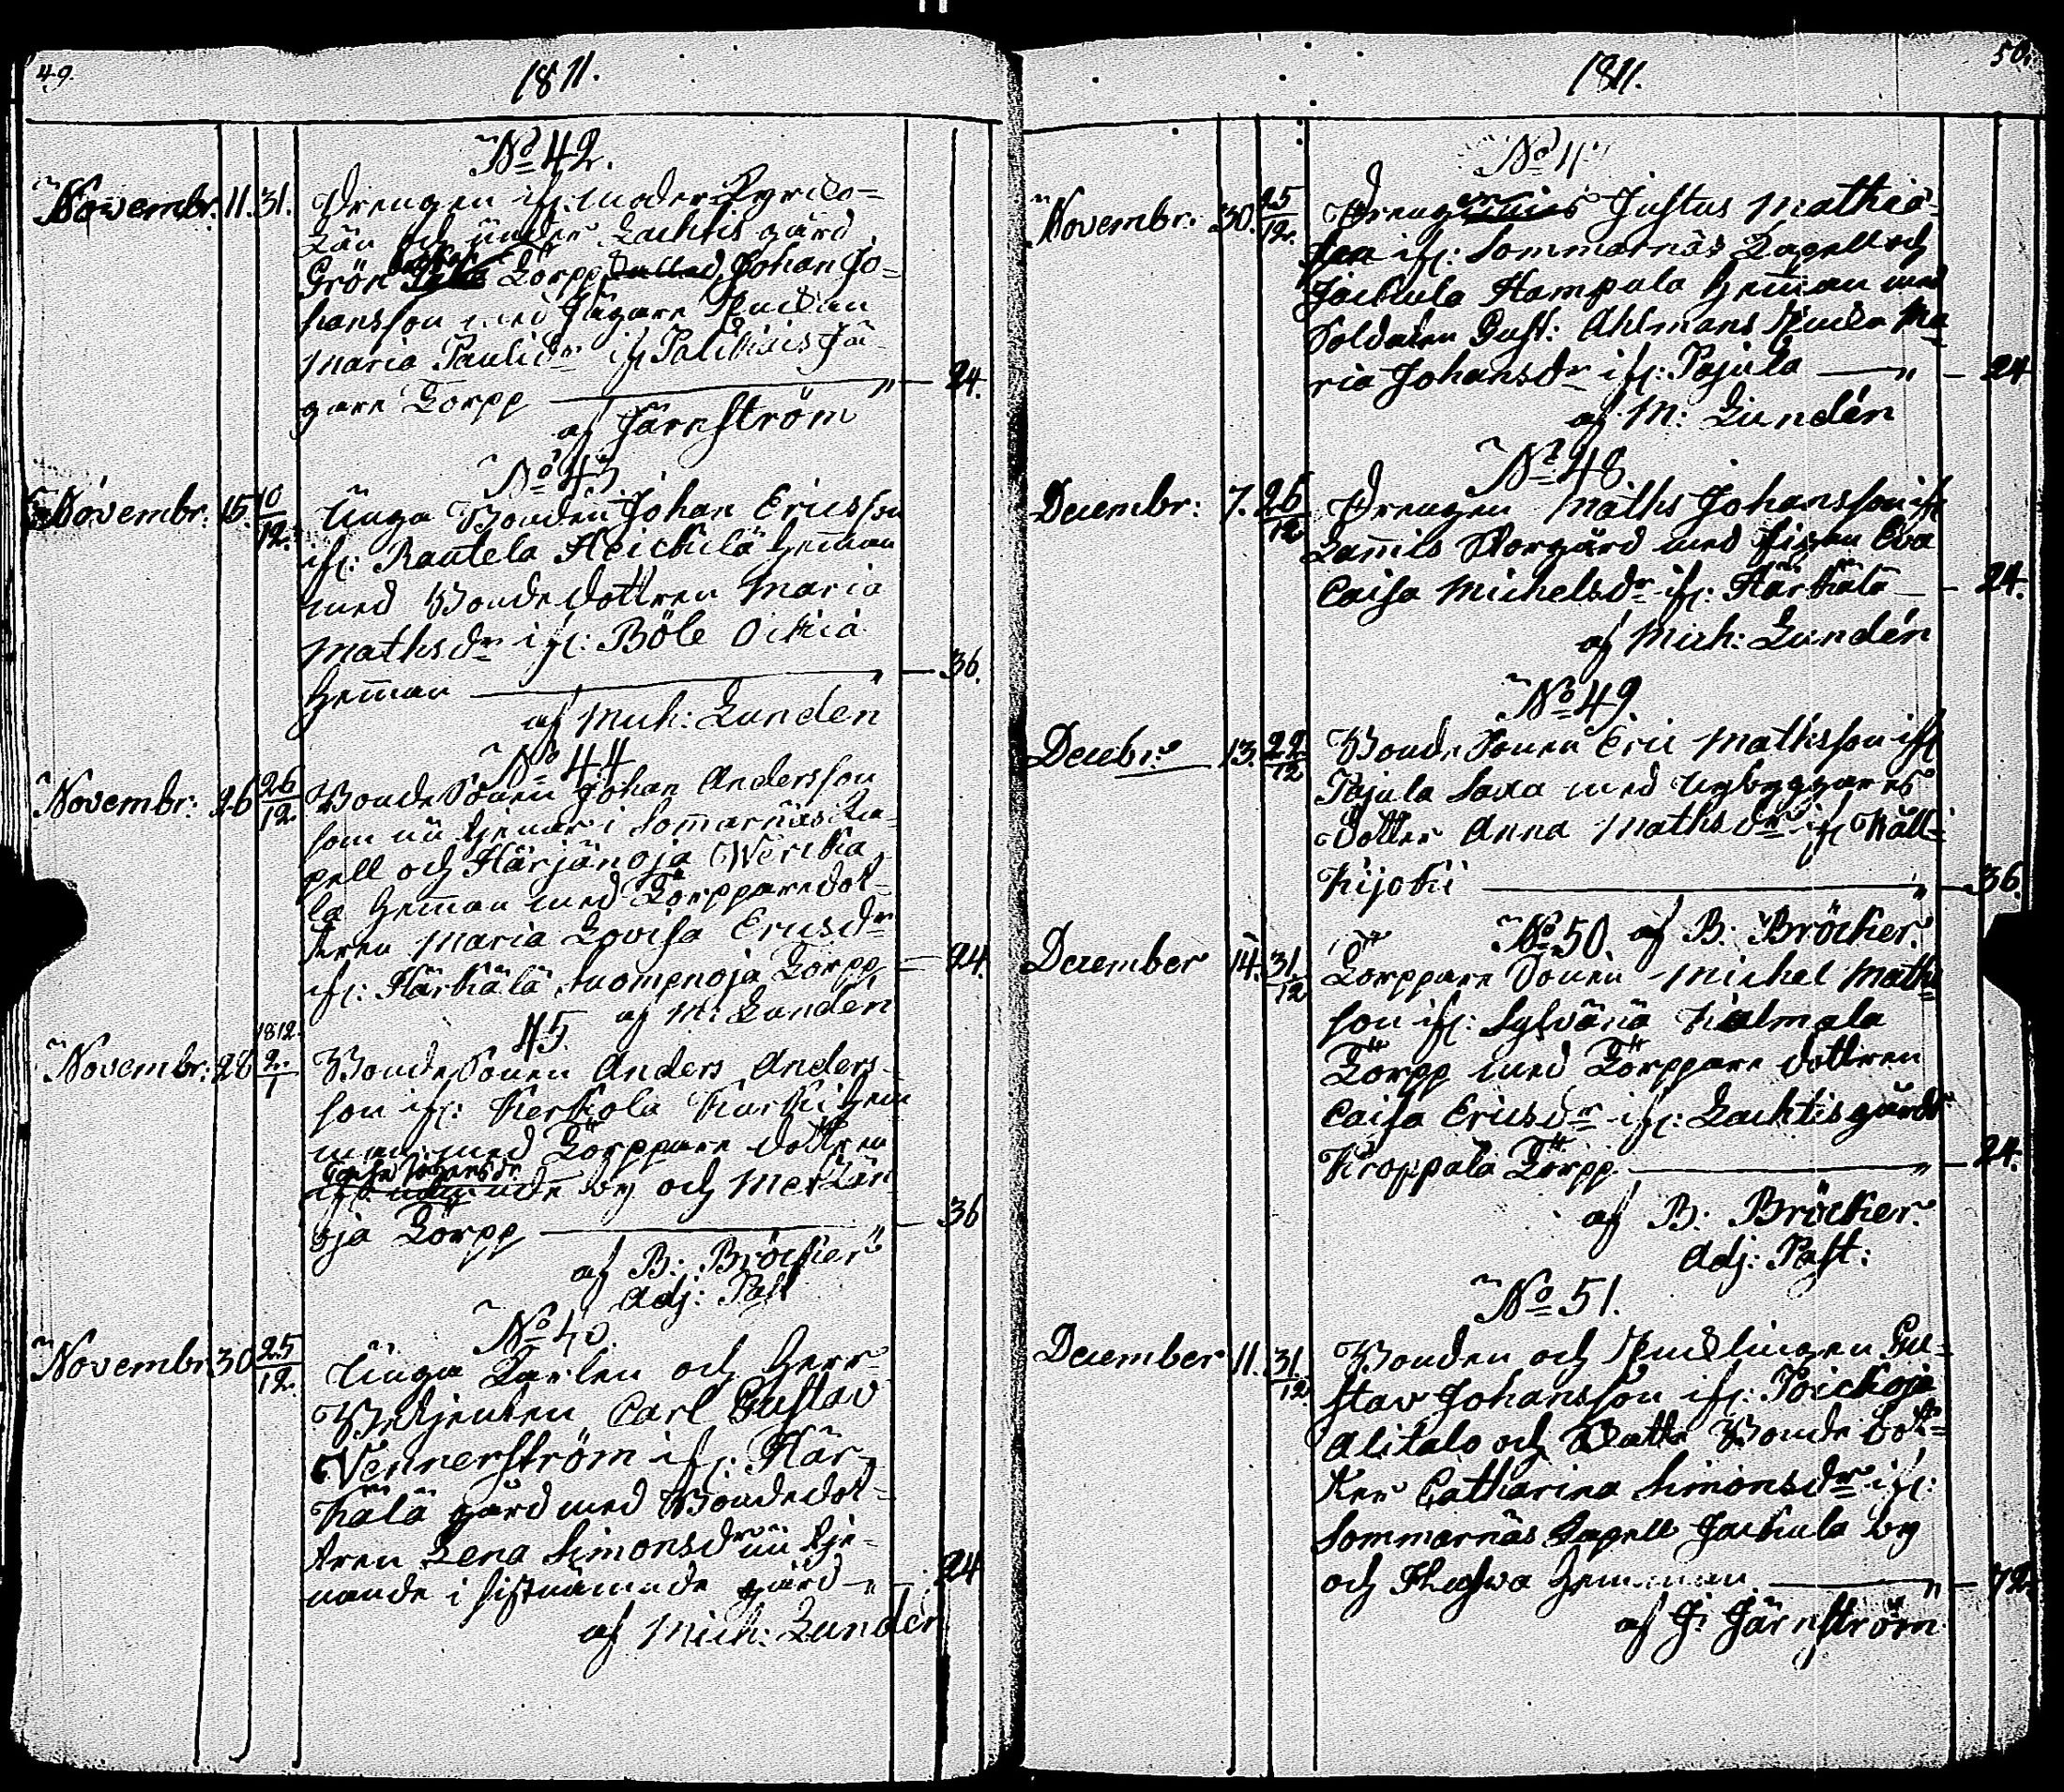 49.
1811.
No 42.
Novembr. 11. 31. Drengen ifr: moder Kyrko=
Län och under Lachtis gård
Grön Torpp Johan Jo=
hansson med Jägare Enckan
Maria Paulidr ifr Jä=
gare Torpp — " — 24.
af Järnström
No 43
Novembr: 15. 10/12. Unga Bonden Johan Ericsson
ifr: Rautela Heickilä Hemman
med Bondedottren Maria
Mathsdr ifr: Böle
Hemman — " — 36.
af Mich: Lunden
No 44
Novembr: 26 26/12. BondeSonen Johan Andersson
som nu tjenar i Somarnäs Ka=
pell och Härjänoja Werka
la Hemman med Torpparedot=
tren Maria Lovisa Ericsdr
ifr: Härkälä Suompnoja Torpp — 24.
af M: Lunden
45
Novembr: 28 1812. 2/1 BondeSonen Anders Anders=
son ifr: Kerkola Kurki Hem
man med Torppare dottren
Caisa Johansdr
by och
oja Torpp — " — 36
af B: Bröcker
Adj: Past
No 46.
Novembr 30 25/12. Unga Karlen och Herr=
Betjenten Carl Gustav
Wennerström ifr: Här=
kälä gård med Bondedot=
tren Lena Simonsdr nu tje=
nande i sistnämnde gård " — 24
af Mich: Lunden
50.
1811.
No 4
Novembr: 30. 25/12. Dreng Justus Mathis
son ifr: Sommarnäs Kapell och
Jackula Hampula Hemman med
Soldaten Gust: Ahlmans Encka Ma
ria Johansdr ifr: Pajula — " — 24
af M: Lundén
No 48.
Decembr: 7. 26/12 Drengen Maths Johansson ifr
Lamis Storgård med Pigan Eva
Caisa Michelsdr ifr: Härkälä — 24.
af Mich: Lundén
No 49
Decebr: 13. 22/12 BondeSonen Eric Mathsson ifr
Pajula Saxa med nybyggares
dotter Anna Mathsdr ifr Wätt=
kijoki — " — 36.
af B: Bröcker.
No 50.
December 14. 31/12 Torppare Sonen Michel Maths
son ifr: Sylvänä Kalmala
Torpp med Torppare dottren
Caisa Ericsdr ifr: Lachtis gårds
Kroppala Torpp — " — 24.
af B: Bröcker.
Adj: Past:
No 51.
December 11. 31/12 Bonden och Encklingen Gu=
stav Johansson ifr: Poickoja
Alitalo och Bonde dot=
ter Catharina Simonsdr ifr:
Sommarnäs Kapell Jackula by
och Hemman — " — 72
af J: Järnström